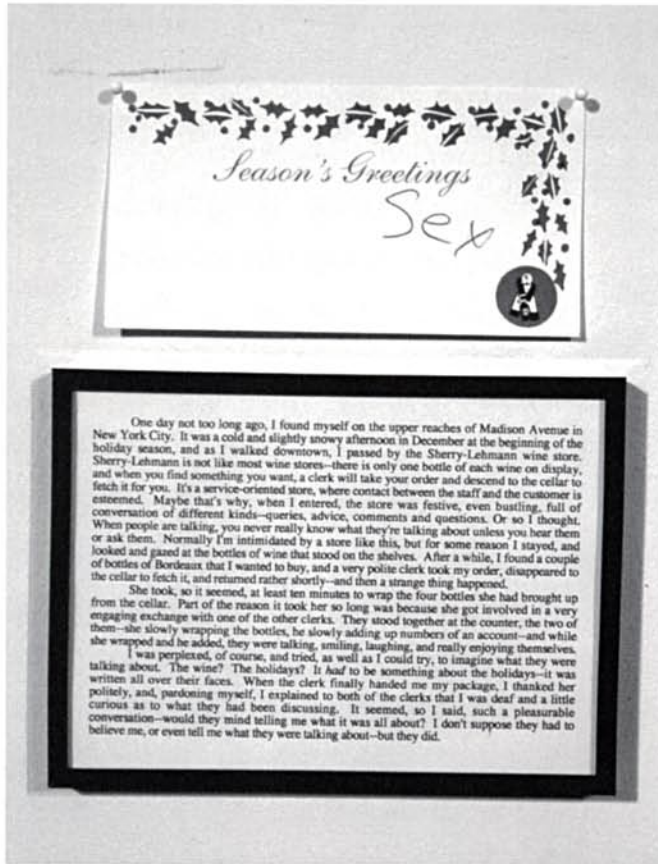 Season's Greetings
Sex
One day not too long ago, I found myself on the upper reaches of Madison Avenue in
New York City. It was a cold and slightly snowy afternoon in December at the beginning of the
holiday season, and as I walked downtown, I passed by the Sherry-Lehmann wine store.
Sherry-Lehmann is not like most wine stores--there is only one bottle of each wine on display,
and when you find something you want, a clerk will take your order and descend to the cellar to
fetch it for you. It's a service-oriented store, where contact between the staff and the customer is
esteemed. Maybe that's why, when I entered, the store was festive, even bustling, full of
conversation of different kinds--queries, advice, comments and questions. Or so I thought.
When people are talking, you never really know what they're talking about unless you hear them
or ask them. Normally I'm intimidated by a store like this, but for some reason I stayed, and
looked and gazed at the bottles of wine that stood on the shelves. After a while, I found a couple
of bottles of Bordeaux that I wanted to buy, and a very polite clerk took my order, disappeared to
the cellar to fetch it, and returned rather shortly--and then a strange thing happened.
She took, so it seemed, at least ten minutes to wrap the four bottles she had brought up
from the cellar. Part of the reason it took her so long was because she got involved in a very
engaging exchange with one of the other clerks. They stood together at the counter, the two of
them--she slowly wrapping the bottles, he slowly adding up numbers of an account--and while
she wrapped and he added, they were talking, smiling, laughing, and really enjoying themselves.
I was perplexed, of course, and tried, as well as I could try, to imagine what they were
talking about. The wine? The holidays? It had to be something about the holidays--it was
written all over their faces. When the clerk finally handed me my package, I thanked her
politely, and, pardoning myself, I explained to both of the clerks that I was deaf and a little
curious as to what they had been discussing. It seemed, so I said, such a pleasurable
conversation--would they mind telling me what it was all about? I don't suppose they had to
believe me, or even tell me what they were talking about--but they did.